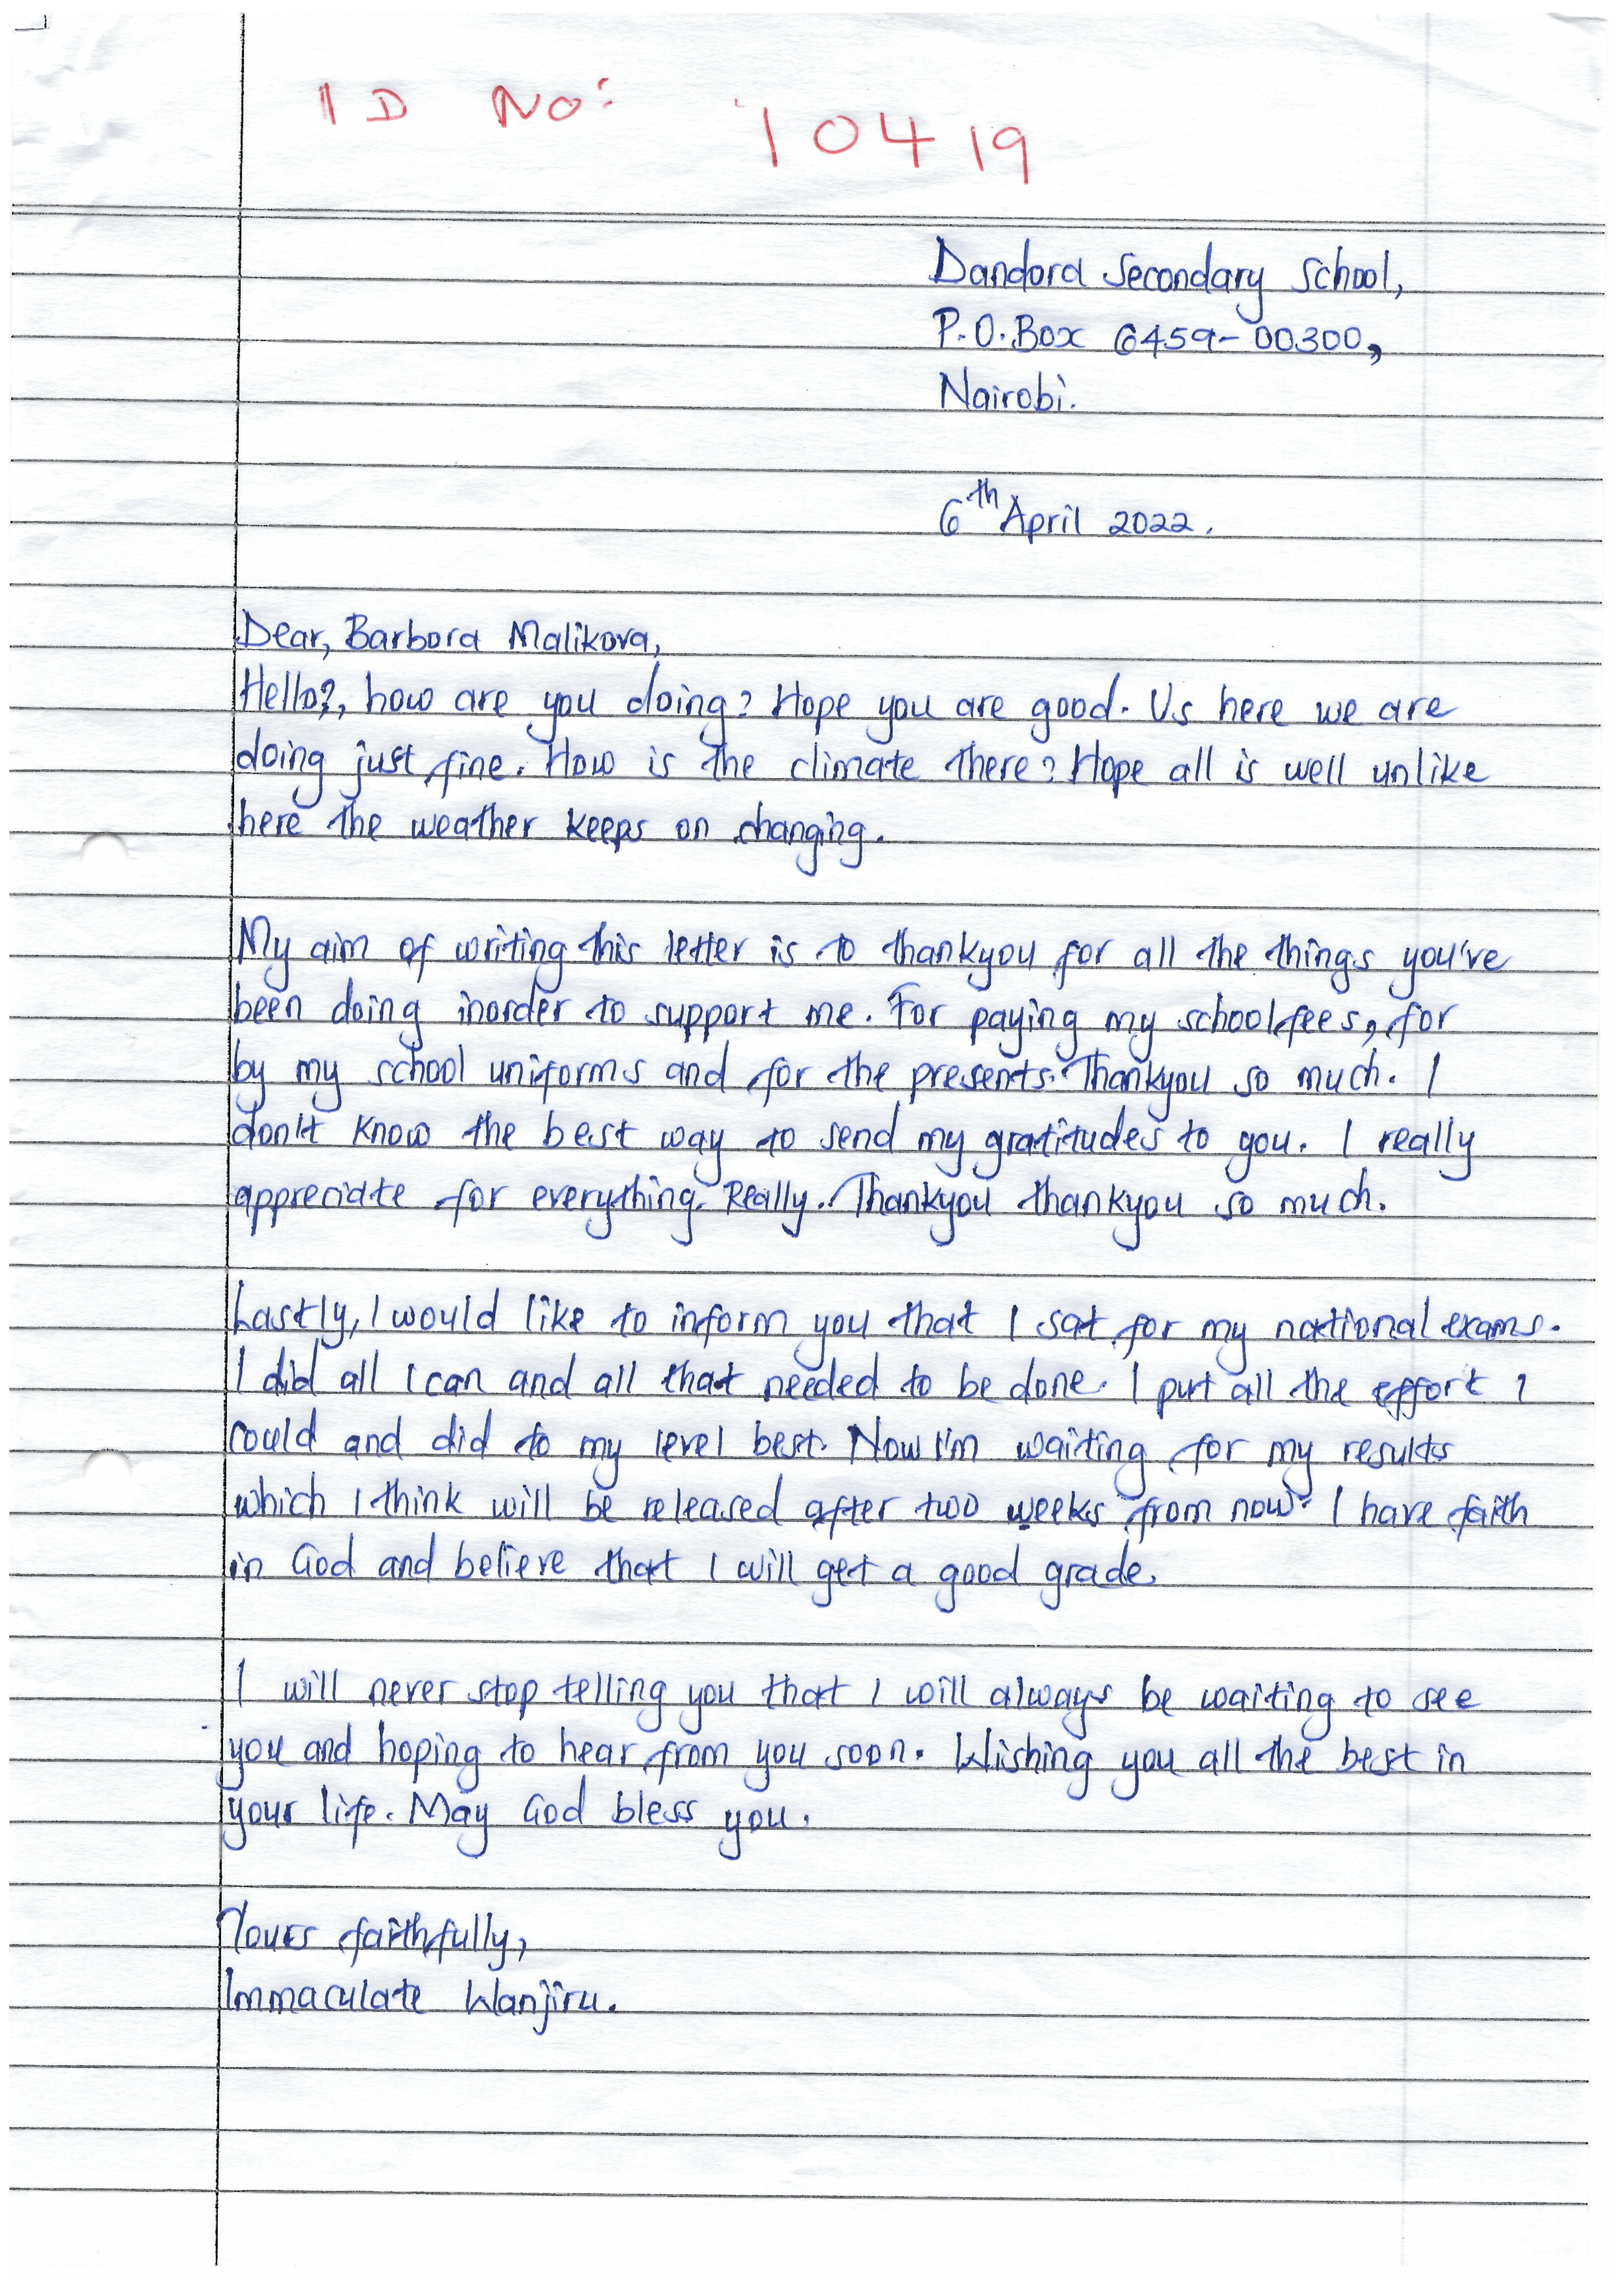 ID No: 10419
Dandora Secondary School,
P.O.Box 6459-00300,
Nairobi.
6th April 2022.
Dear, Barbora Malikova,
Hello?, how are you doing? Hope you are good. Us here we are
doing just fine. How is the climate there? Hope all is well unlike
here the weather keeps on changing.
My aim of writing this letter is to thankyou for all the things you've
been doing inorder to support me. For paying my schoolfees, for
by my school uniforms and for the presents. Thankyou so much. I
don't know the best way to send my gratitudes to you. I really
appreciate for everything. Really. Thankyou thankyou so much.
Lastly, I would like to inform you that I sat for my national exams.
I did all I can and all that needed to be done. I put all the effort I
could and did to my level best. Now I'm waiting for my results
which I think will be released after two weeks from now. I have faith
in God and believe that I will get a good grade.
I will never stop telling you that I will always be waiting to see
you and hoping to hear from you soon. Wishing you all the best in
your life. May God bless you.
Yours faithfully,
Immaculate Wanjiru.